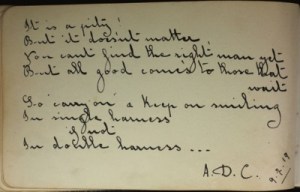 It is a pity!
But it doesn't matter
You can't find the right man yet
But all good comes to those that
wait
So 'carry on' & keep on smiling
In single harness
if not
In double harness ...
A.D.C.